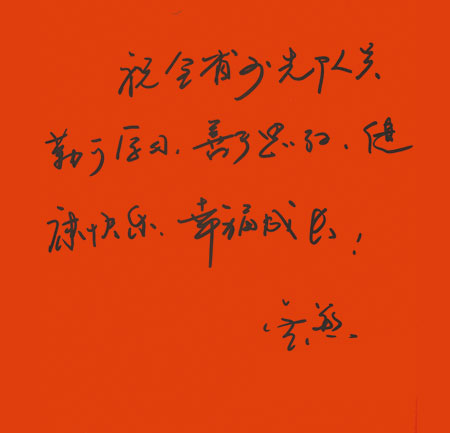 祝全省少先队员
勤于学习、善于思考、健
康快乐、幸福成长！